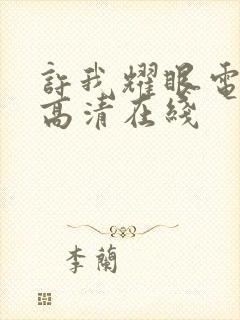 許我耀眼電
高清在綫
李蘭